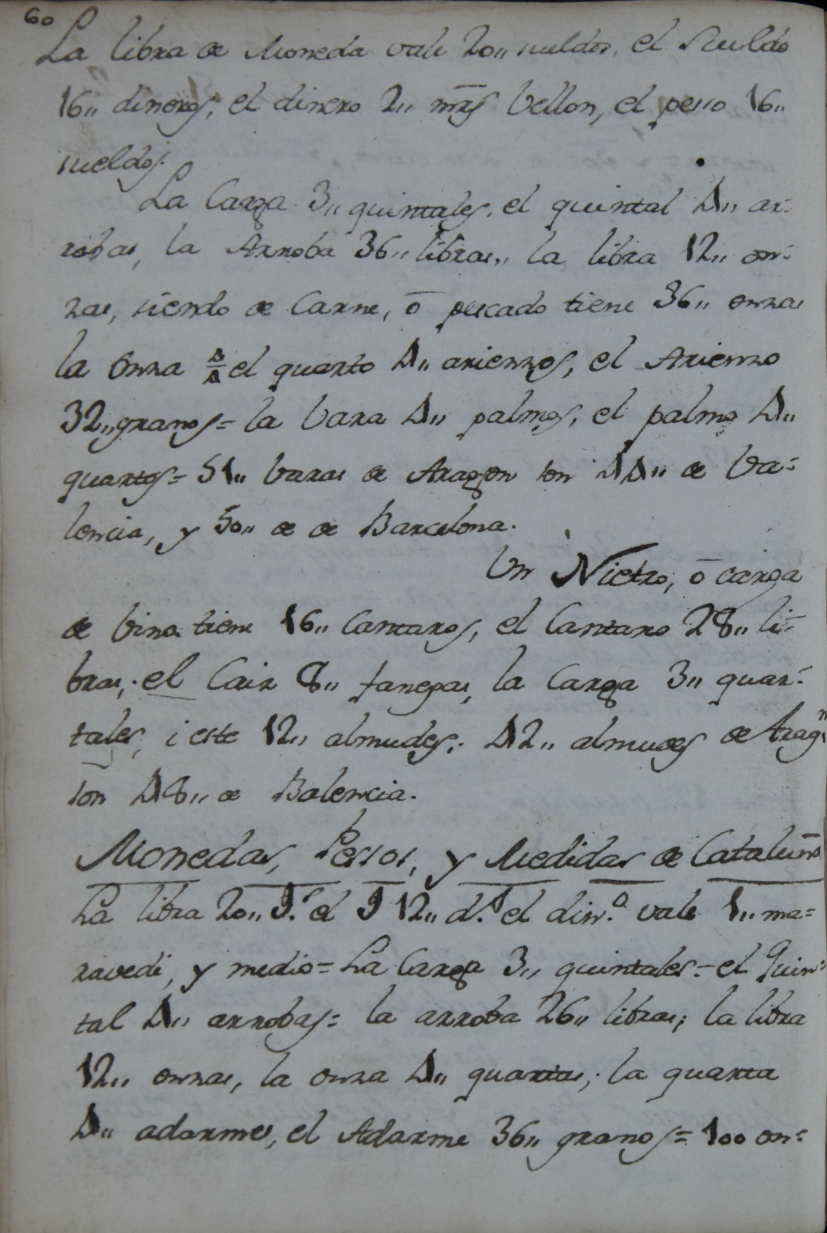 60
La libra de Moneda vale 20,, sueldos, el Sueldo
16,, dineros, el dinero 2,, mrs vellon, el pesso 16,,
sueldos.
La Carga 3,, quintales, el quintal 4,, ar-
robas, la Arroba 36,, libras,, la libra 12,, on-
zas, siendo de Carne, ó pescado tiene 36,, onzas
la Onza 4/4 el quarto 4,, arienzos, el Arienzo
32,, granos= la Vara 4,, palmos, el palmo 4,,
quartos= 51,, Varas de Aragon son 44,, de Va=
lencia, y 50,, de de Barcelona.
Un Nietro, ó carga
de Vino tiene 16,, Cantaros, el Cantaro 28,, li-
bras,. el Caiz 8,, fanegas, la Carga 3,, quar-
tales, i este 12,, almudes,. 42,, almudes de Aragn
son 48,, de Balencia.
Monedas, Pessos, y Medidas de Cataluña
La libra 20,, S.s el S 12,, d.s el din.o vale 1,, ma=
ravedi, y medio= La Carga 3,, quintales- el Quin-
tal 4,, arrobas= la arroba 26,, libras; la libra
12,, onzas, la onza 4,, quartas,. la quarta
4,, adarmes, el Adarme 36,, granos= 100 on=